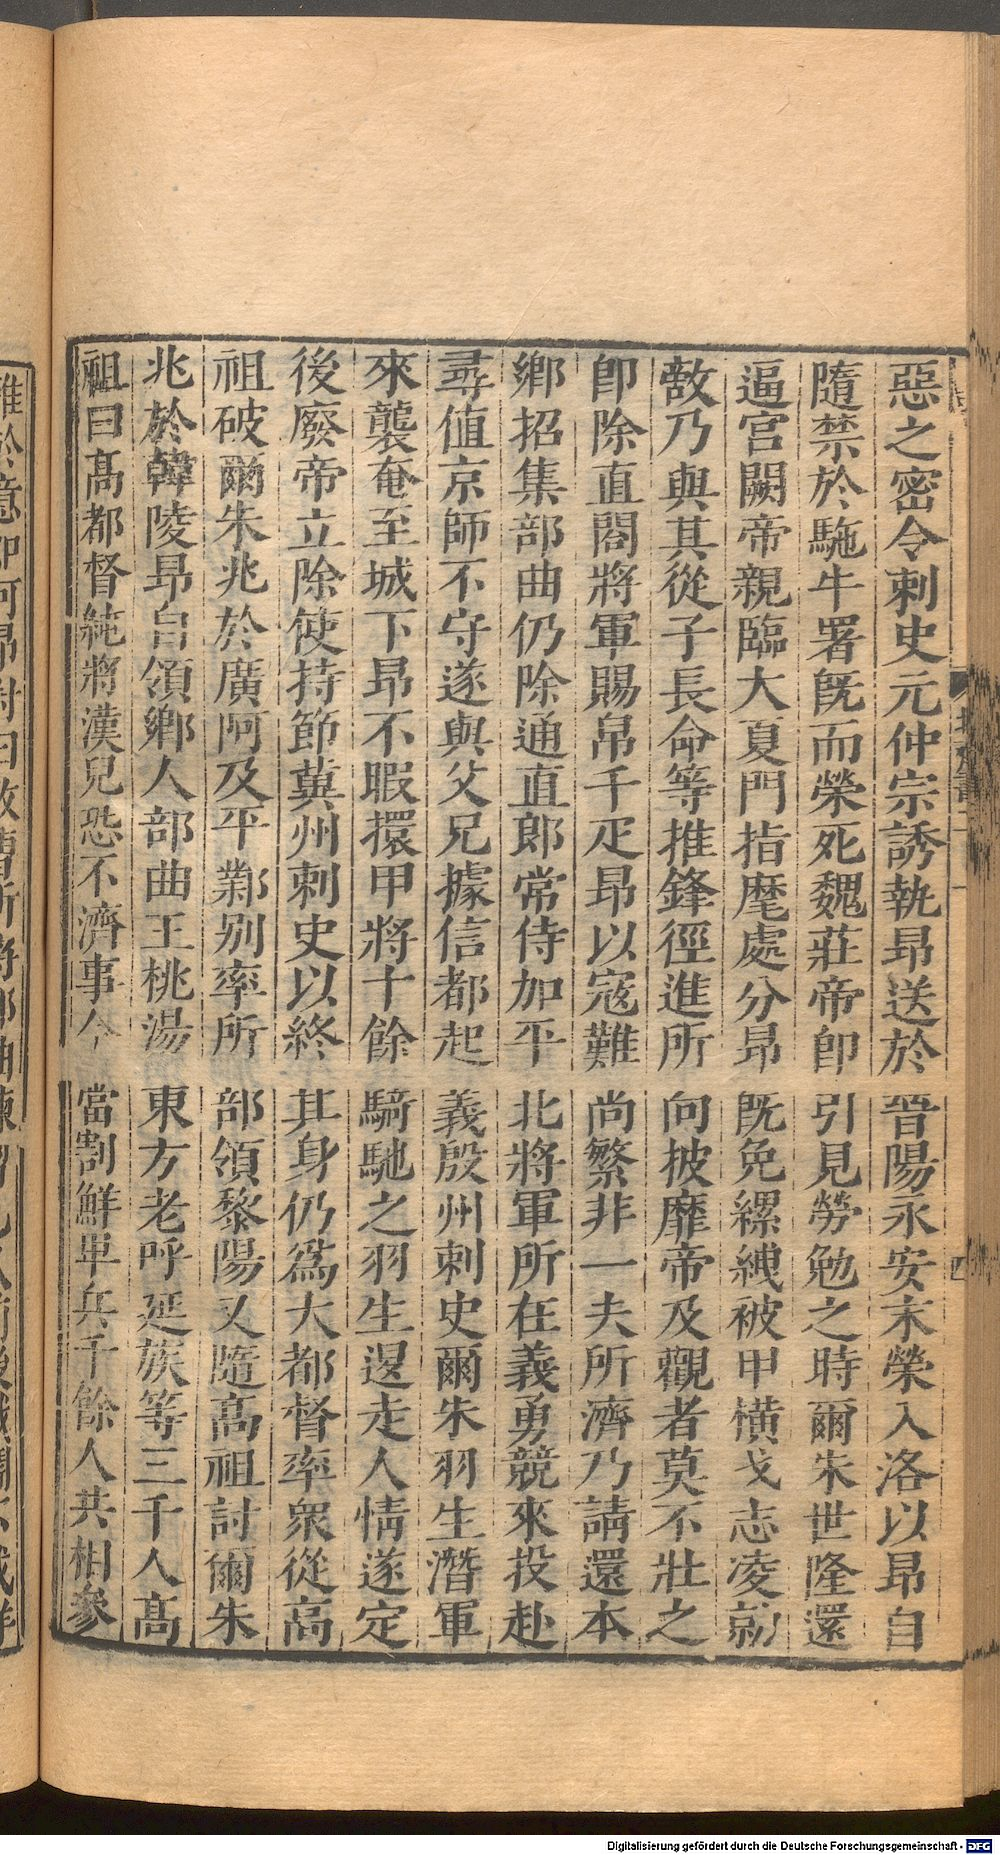 惡之密令刺史元仲宗誘執昂送於晉陽永安末榮入洛以昂自
隨禁於駞牛署旣而榮死魏莊帝卽引見勞勉之時爾朱世隆還
逼宮闕帝親臨大夏門指麾處分昂旣免縲絏被甲橫戈志凌勍
敵乃與其從子長命等推鋒徑進所向披靡帝及觀者莫不壯之
卽除直閤將軍賜帛千疋昂以寇難尚繁非一夫所濟乃請還本
鄉招集部曲仍除通直郎常侍加平北將軍所在義勇競來投赴
尋值京師不守遂與父兄據信都起義殷州刺史爾朱羽生潛軍
來襲奄至城下昂不暇擐甲將十餘騎馳之羽生退走人情遂定
後廢帝立除使持節冀州刺史以終其身仍爲大都督率衆從高
祖破爾朱兆於廣阿及平鄴別率所部領黎陽又隨高祖討爾朱
兆於韓陵昂自領鄉人部曲王桃湯東方老呼延族等三千人高
祖曰高都督純將漢兒恐不濟事今當割鮮卑兵千餘人共相參
Digitalisierung gefördert durch die Deutsche Forschungsgemeinschaft - DFG